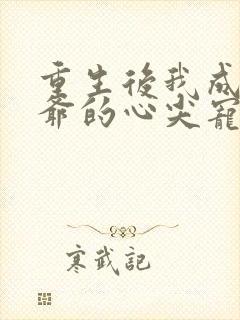 重生後我成
爺的心尖寵
寒武記